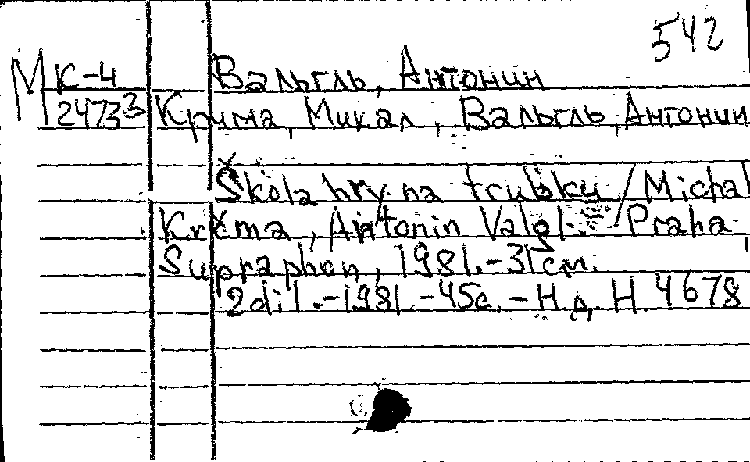 542
М К-4 Вальгль, Антонин
24733 Крчма, Микал, Вальгль, Антонин
Škola hry na trubku / Michal
Krčma, Antonin Valgl.- Praha
Supraphon, 1981.-31см.
2díl.-1981.-45с.-Н.д. Н.4678